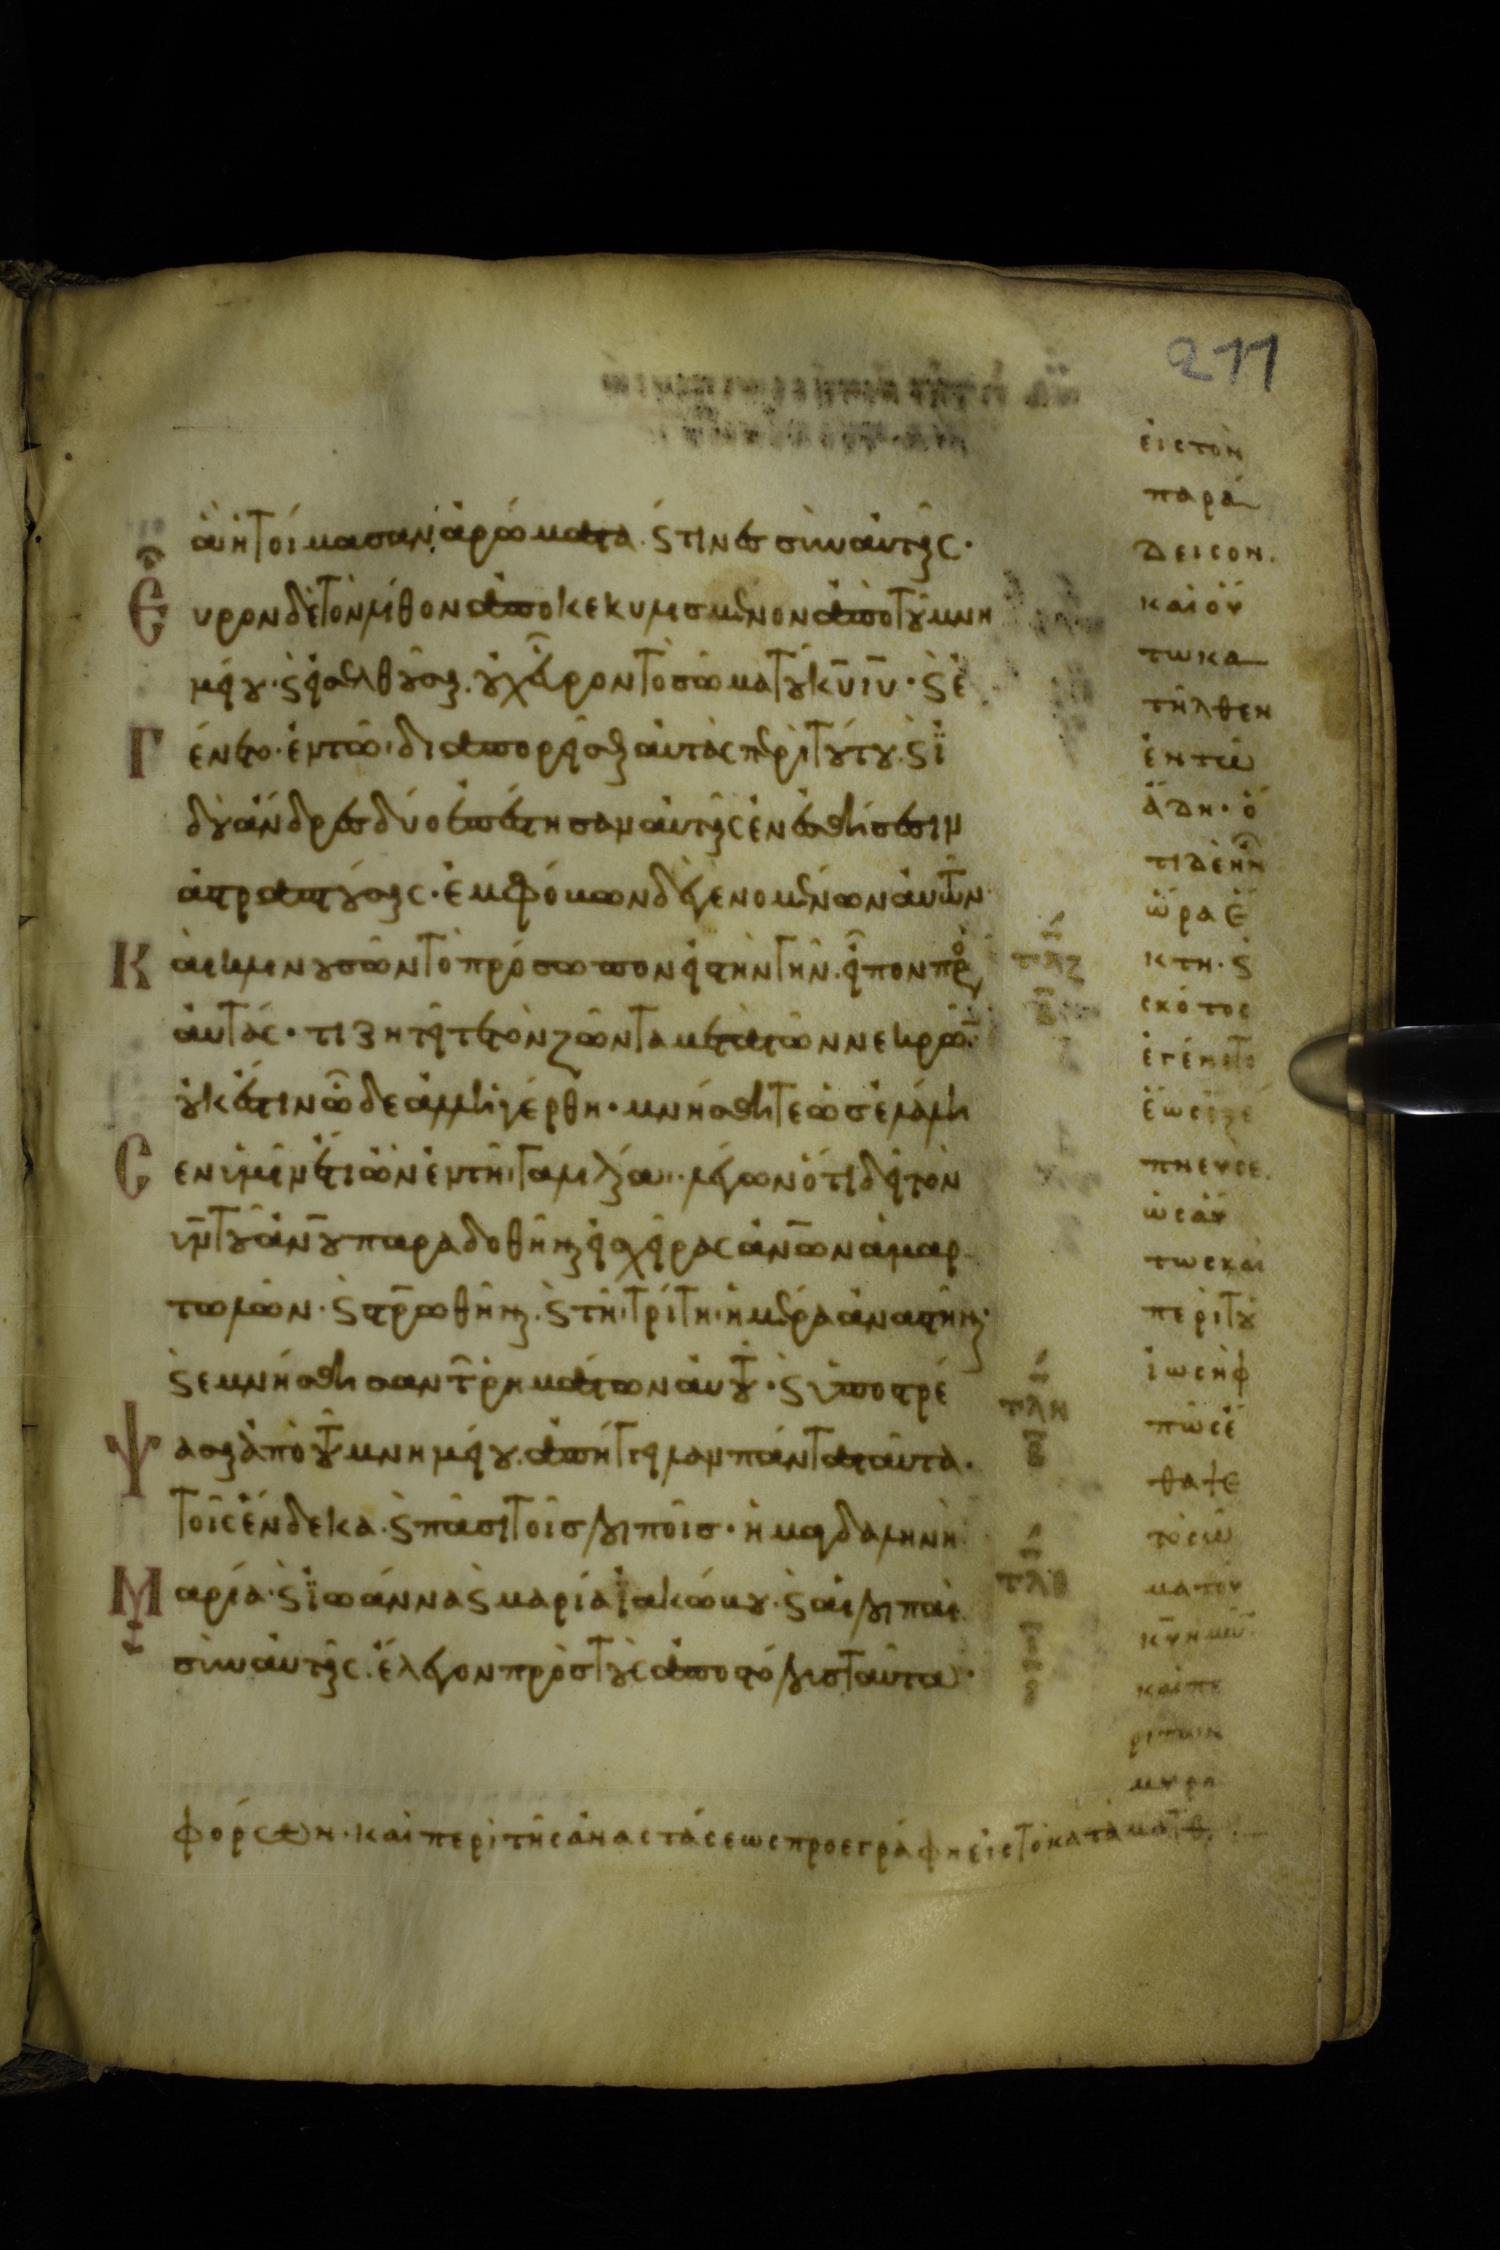 211
ἃ ἡτοίμασαν ἀρώματα. ϛ τινες σὺν αὐταῖς·
Εὗρον δὲ τὸν λίθον ἀποκεκυλισμένον ἀπὸ τοῦ μνη
μείου· ϛ εἰσελθοῦσαι. οὐχ εὗρον τὸ σῶμα τοῦ κ̅υ̅ ι̅υ̅· ϛ ἐ
Γένετο· ἐν τῶ· διαπορεῖσθαι αὐτὰς περὶ τούτου. ϛ ἰ
δοὺ ἄνδρες δύο ἐπέστησαν αὐταῖς ἐν ἐσθήσεσιν
ἀστραπτούσαις· ἐμφόβων δὲ γενομένων αὐτῶν·
Καὶ κλινουσῶν τὸ πρόσωπον εἰς τὴν γῆν. εἶπον πρὸς
αὐτάς· τί ζητεῖτε τὸν ζῶντα μετὰ τῶν νεκρῶν·
οὐκ ἔστιν ὧδε ἀλλ ἠγέρθη· μνήσθητε ὡς ἐλάλη
Σεν ὑμῖν ἔτι ὢν ἐν τῆ γαλιλαία· λέγων ὅτι δεῖ τὸν
υ̅ν̅ τοῦ ἀν̅ο̅υ̅ παραδοθῆναι εἰς χεῖρας ἀν̅ω̅ν ἁμαρ
τωλῶν· ϛ στ̅ρ̅ωθῆναι. ϛ τῆ τρίτη ἡμέρα ἀναστῆναι·
ϛ ἐμνήσθησαν τῶν ῥημάτων αὐτοῦ· ϛ ὑποστρέ
Ψασαι ἀπὸ τοῦ μνημείου. ἀπήγγειλαν πάντα ταῦτα·
τοῖς ἕνδεκα. ϛ πᾶσι τοῖς λοιποῖς· ἡ μαγδαληνὴ
Μαρία· ϛ ἰωάννα ϛ μαρία ἰακώβου· ϛ αἱ λοιπαὶ
σὺν αὐταῖς. ἔλεγον πρὸς τοὺς ἀποστόλους ταῦτα·
τλζ
τλη
τλθ
εἰς τὸν
παρά
δεισον.
καὶ οὗ
τω κα
τῆλθεν
ἐν τῶ
ἅδη· ὅ
τι δὲ ἦν
ὥρα ἕ
κτη· ϛ
σκότος
ἐγένετο
ἕως ἐξέ
πνευσε.
ὡσαύ
τως καὶ
περὶ τοῦ
ἰωσὴφ
πῶς ἔ
θαψε
τὸ σῶ
μα τοῦ
κ̅υ̅ ἡμῶν
καὶ πε
ρὶ τῶν
μυρο
φόρων· καὶ περὶ τῆς ἀναστάσεως προεγράφη εἰς τὸ κατὰ ματθ